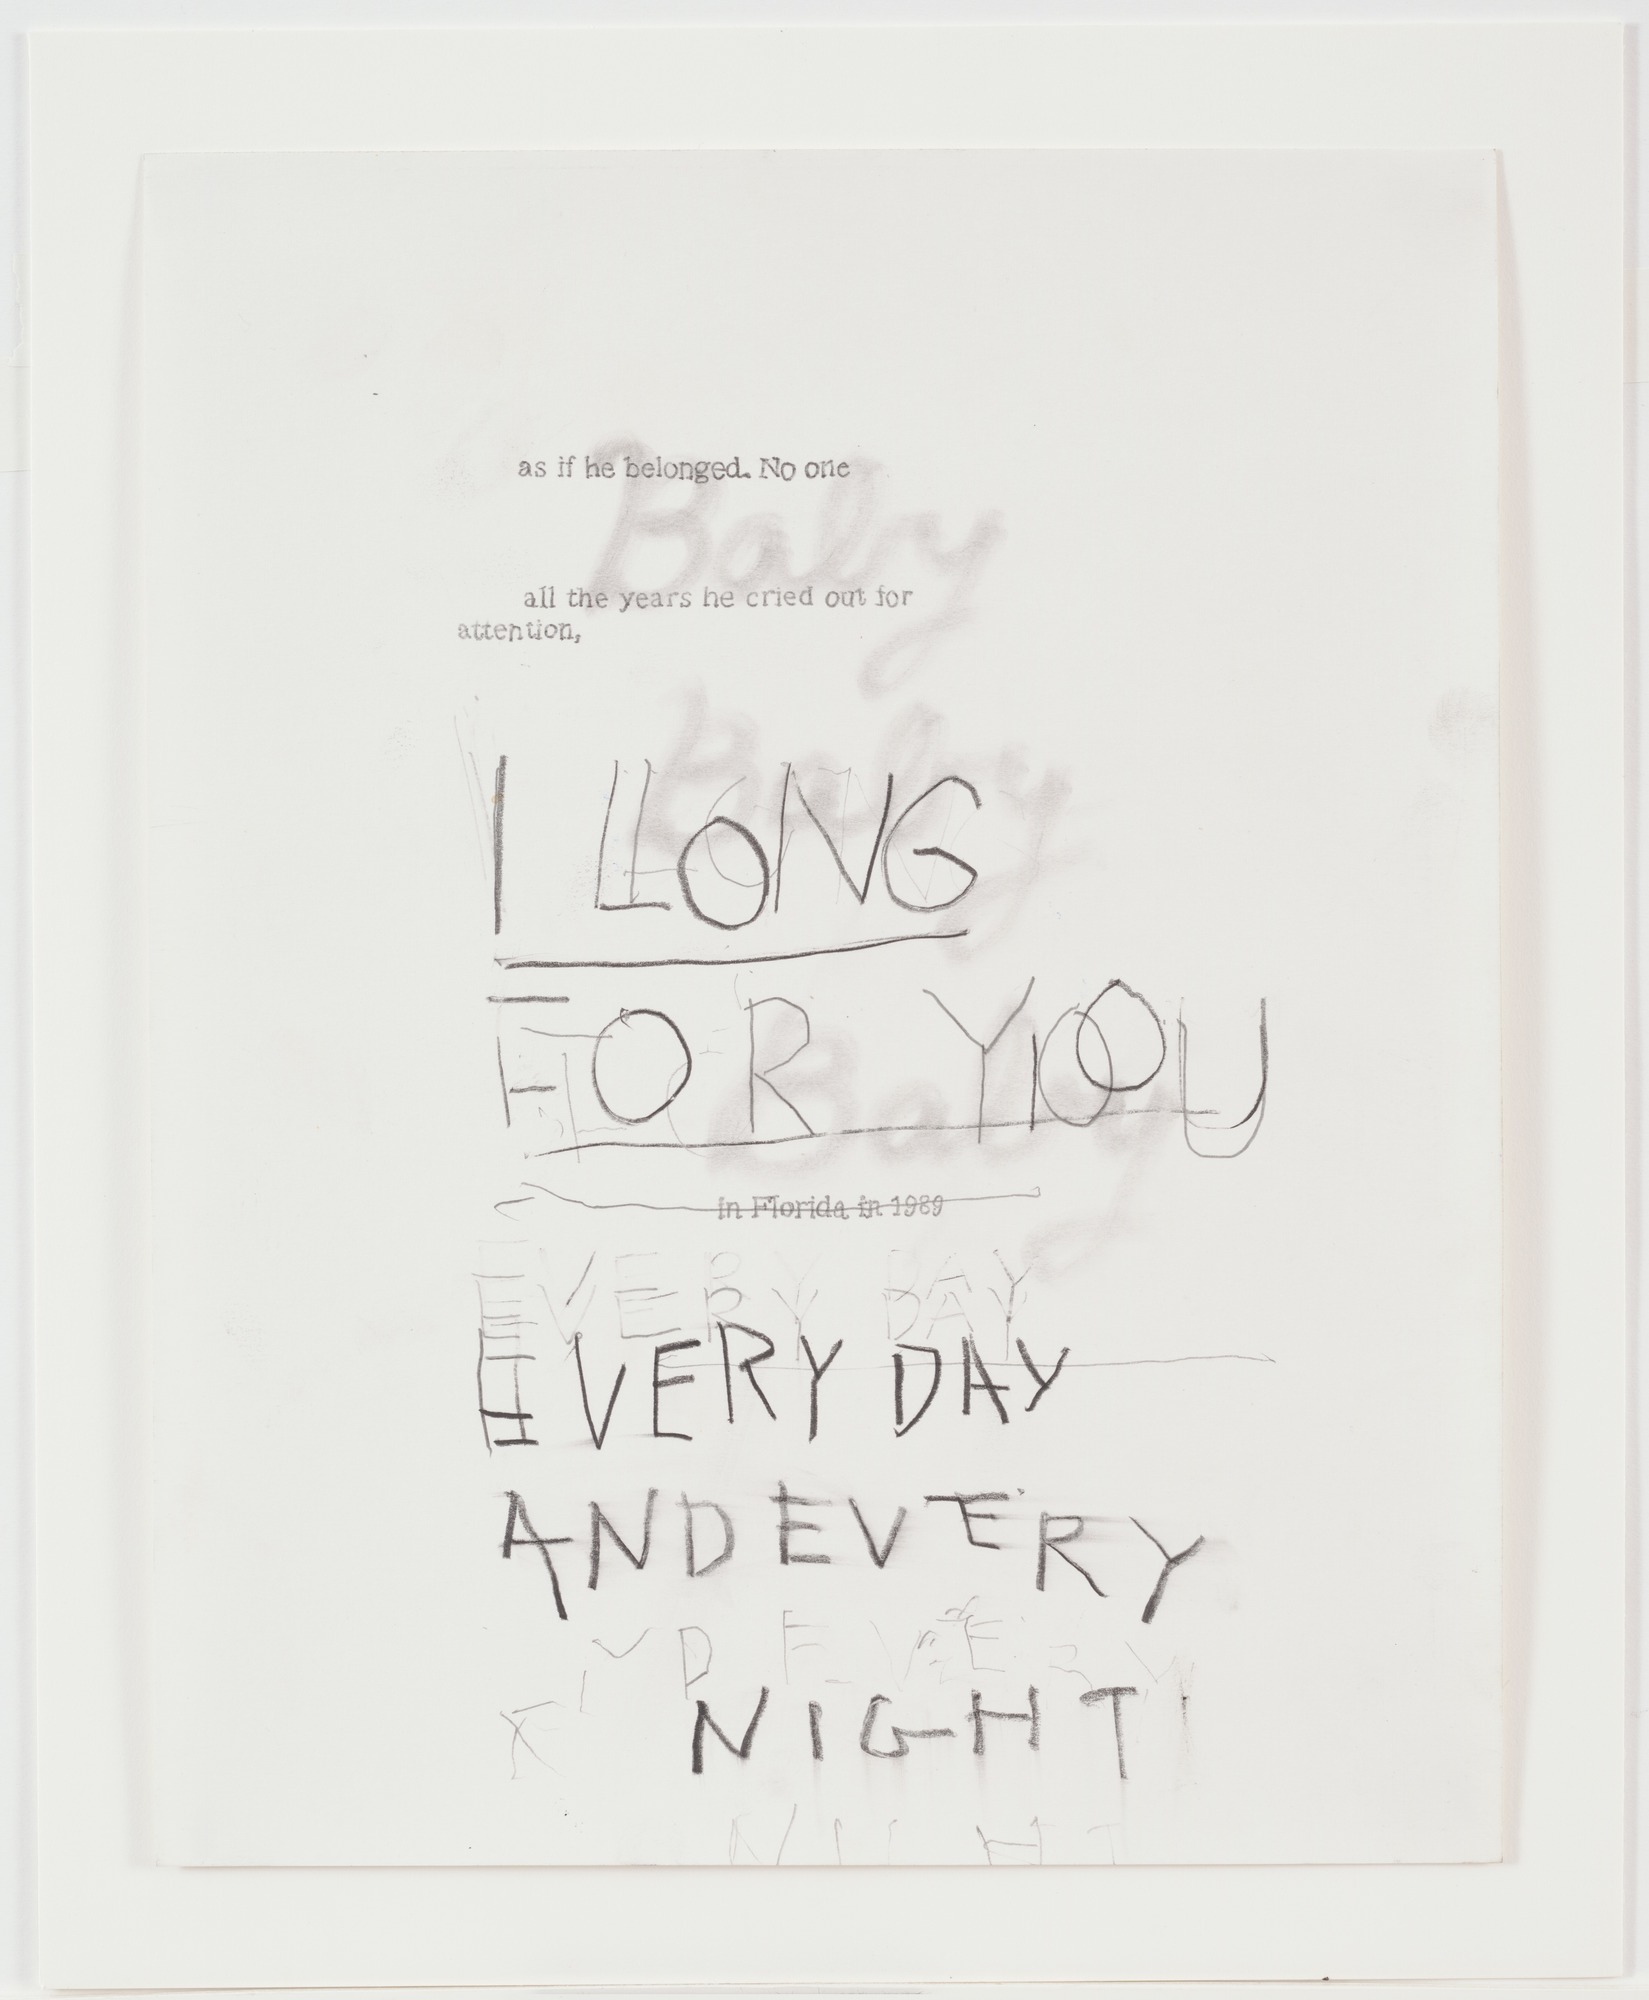 as if he belonged. No one
Baby
all the years he cried out for
attention,
Baby
I LLONG
FOR YIOOU
Baby
in Florida in 1989
EVERY DAY
EVERY DAY
EVERY DAY
AND EVERY
ND EVERY
NIGHT
NI HT